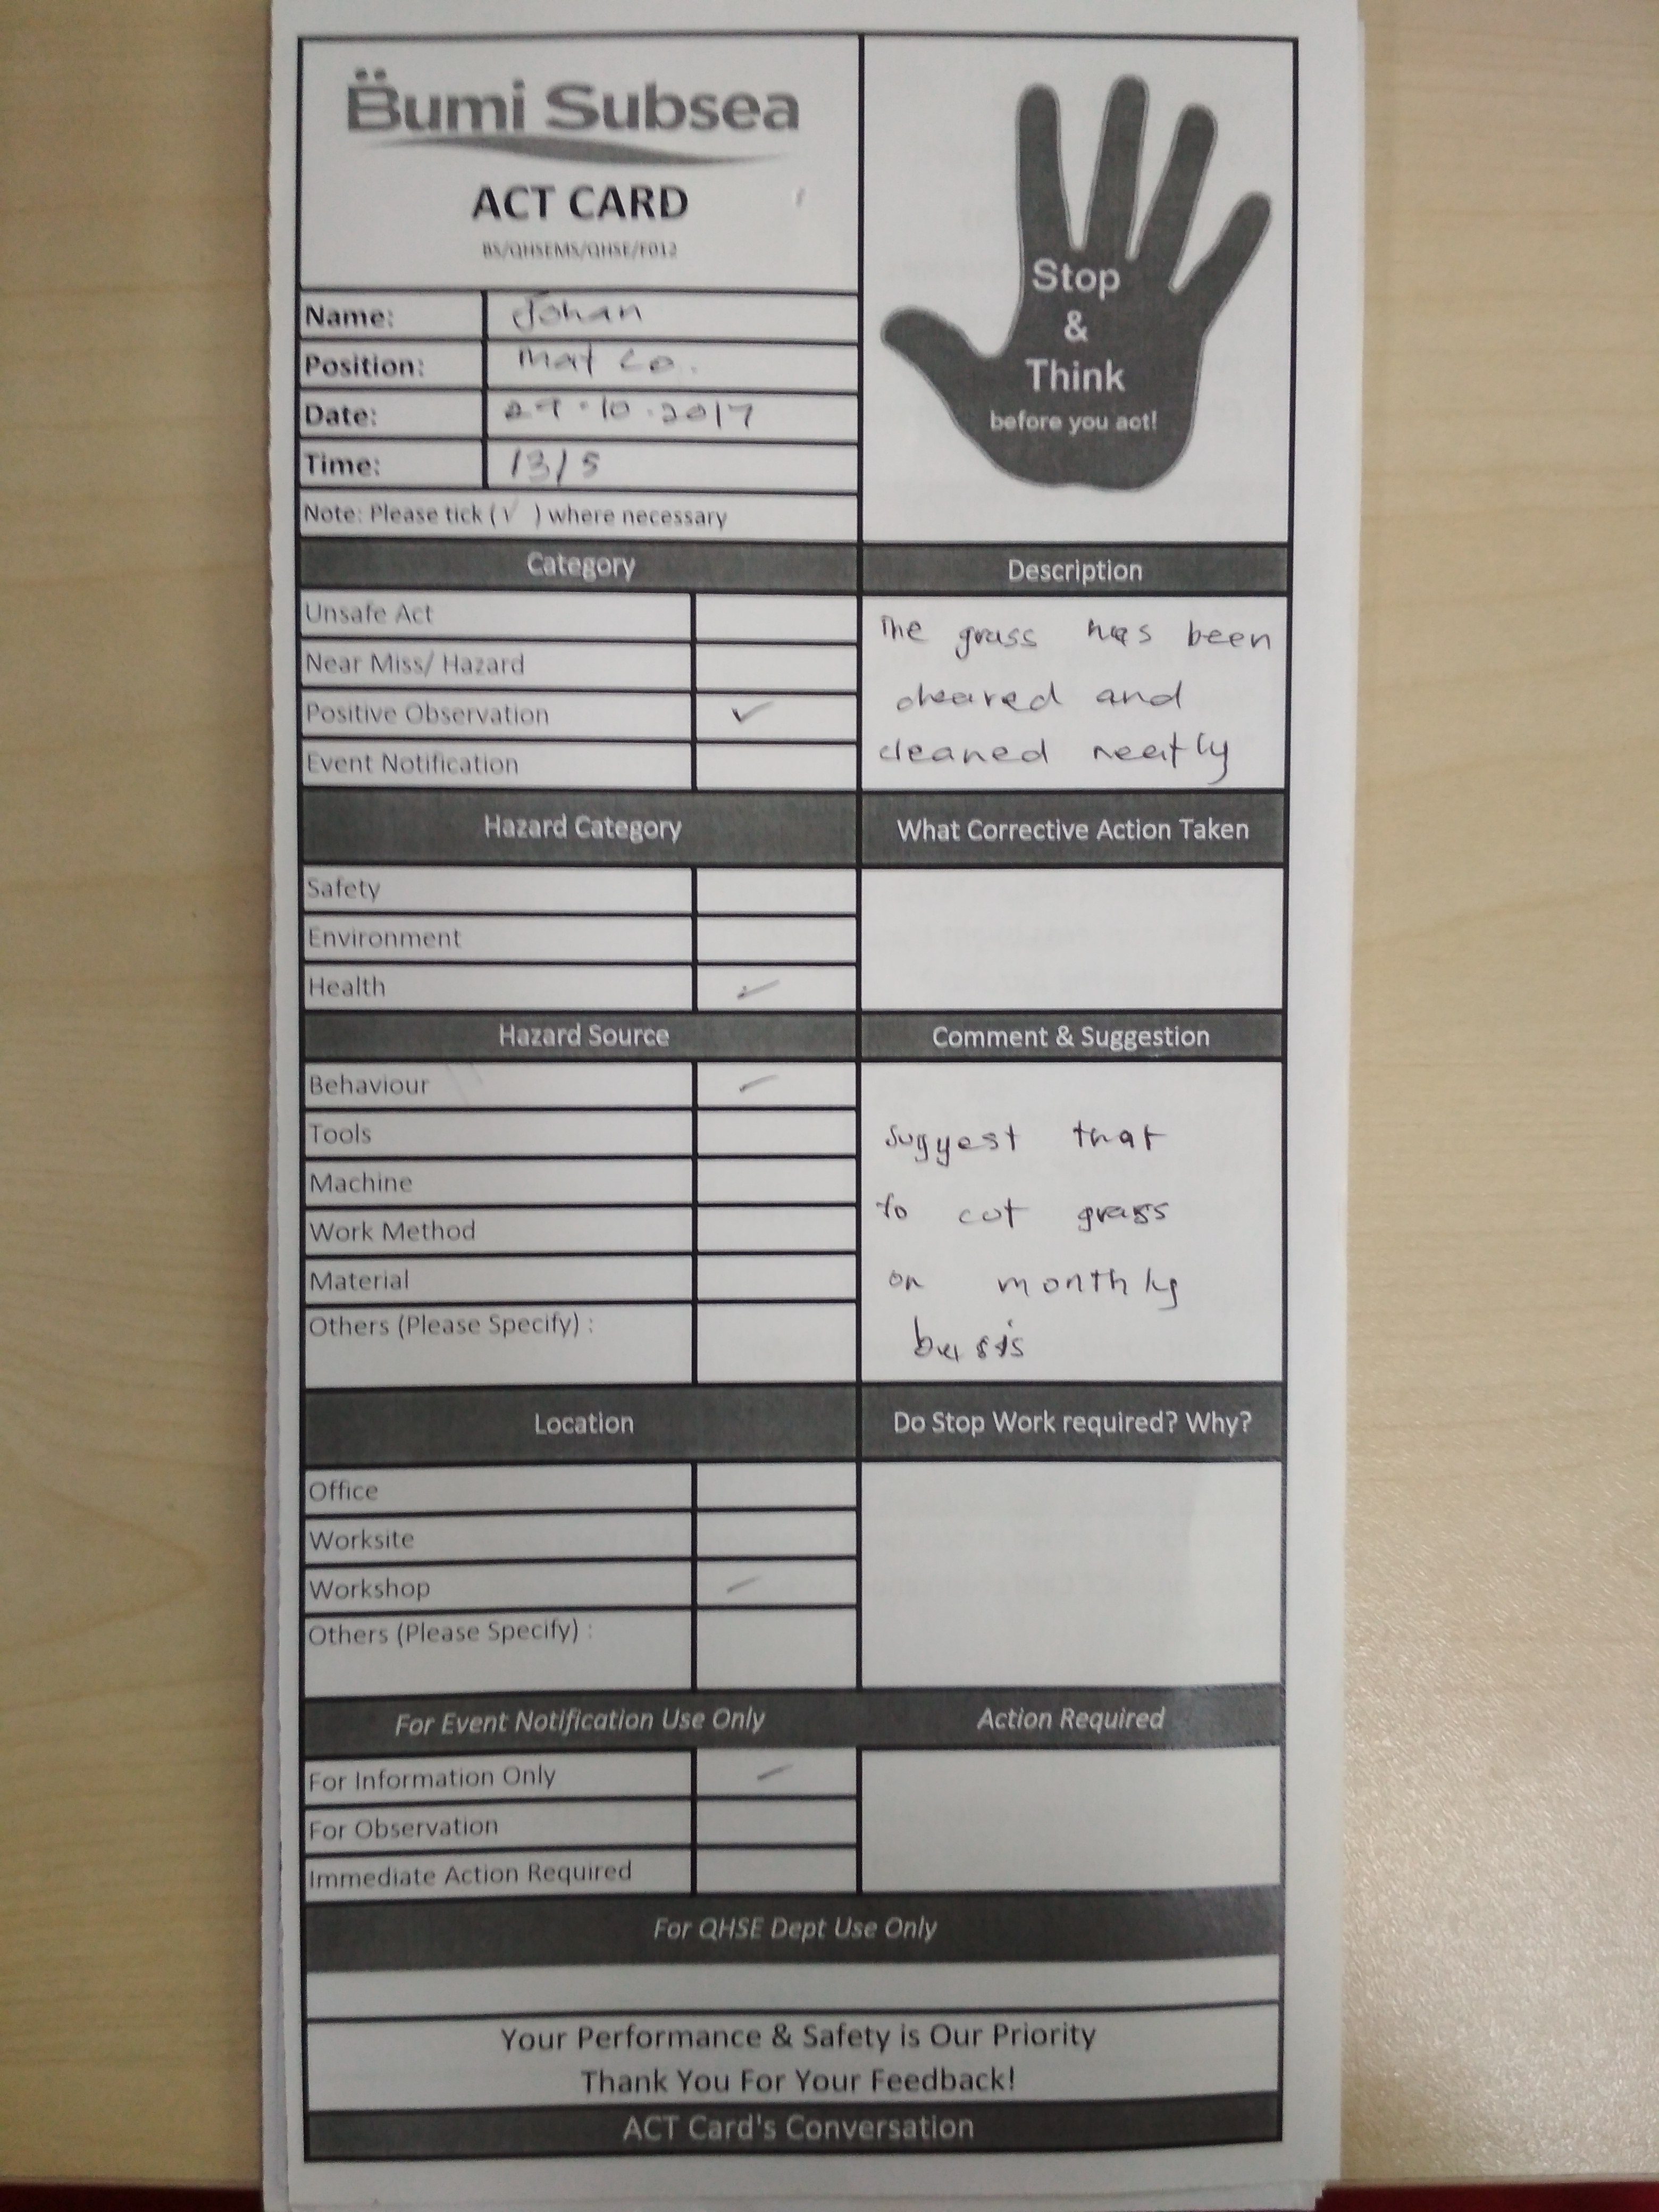 Bumi Subsea
ACT CARD
BS/QHSEMS/QHSE/F012
Name: Johan
Position: mat co.
Date: 10.2017
Time: 1315
Note: Please tick (√ ) where necessary
Stop
&
Think
before you act!
Category
Unsafe Act
Near Miss/ Hazard
Positive Observation ✓
Event Notification
Description
The grass has been
cleared and
cleaned neatly
Hazard Category
Safety
Environment
Health ✓
What Corrective Action Taken
Hazard Source
Behaviour ✓
Tools
Machine
Work Method
Material
Others (Please Specify) :
Comment & Suggestion
suggest that
to cut grass
on monthly
basis
Location
Office
Worksite
Workshop ✓
Others (Please Specify) :
Do Stop Work required? Why?
For Event Notification Use Only
For Information Only ✓
For Observation
Immediate Action Required
Action Required
For QHSE Dept Use Only
Your Performance & Safety is Our Priority
Thank You For Your Feedback!
ACT Card's Conversation